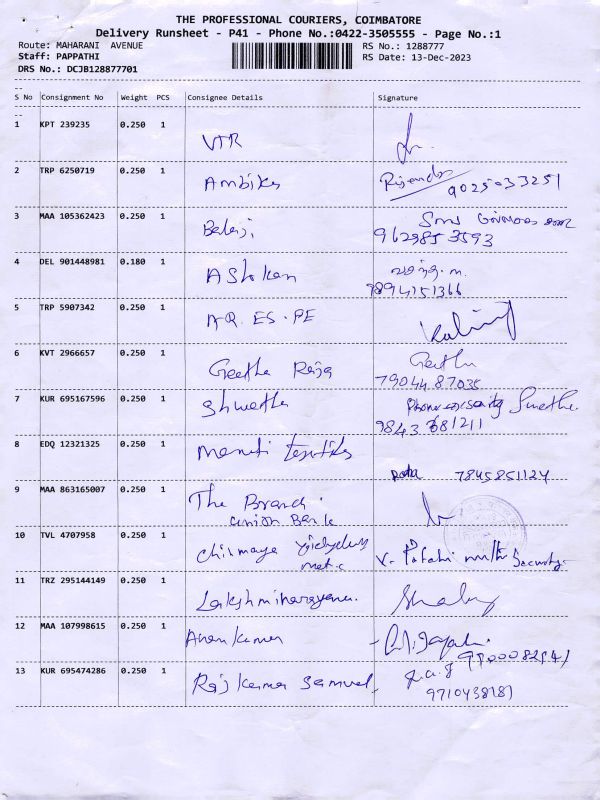 THE PROFESSIONAL COURIERS, COIMBATORE
Delivery Runsheet - P41 - Phone No.:0422-3505555 - Page No.:1
Route: MAHARANI AVENUE
RS No.: 1288777
Staff: PAPPATHI
RS Date: 13-Dec-2023
DRS No.: DCJB128877701
--
S No Consignment No Weight PCS Consignee Details Signature
--
1 KPT 239235 0.250 1
VTR
2 TRP 6250719 0.250 1
Ambika 9025033251
3 MAA 105362423 0.250 1
Balaji 9629853593
4 DEL 901448981 0.180 1
Ashokan
9894151366
5 TRP 5907342 0.250 1
A.R. ES.PE
6 KVT 2966657 0.250 1
Geetha Raja Geetha
79044 87035
7 KUR 695167596 0.250 1
Shwetha Swetha
9843 681211
8 EDQ 12321325 0.250 1
Maruti Textiles
7845851124
9 MAA 863165007 0.250 1
The Branch
Union Bank
10 TVL 4707958 0.250 1
Chinmaya Security
11 TRZ 295144149 0.250 1
Lakshminarayana
12 MAA 107998615 0.250 1
Arun Kumar
13 KUR 695474286 0.250 1
Raj Kumar Samuel